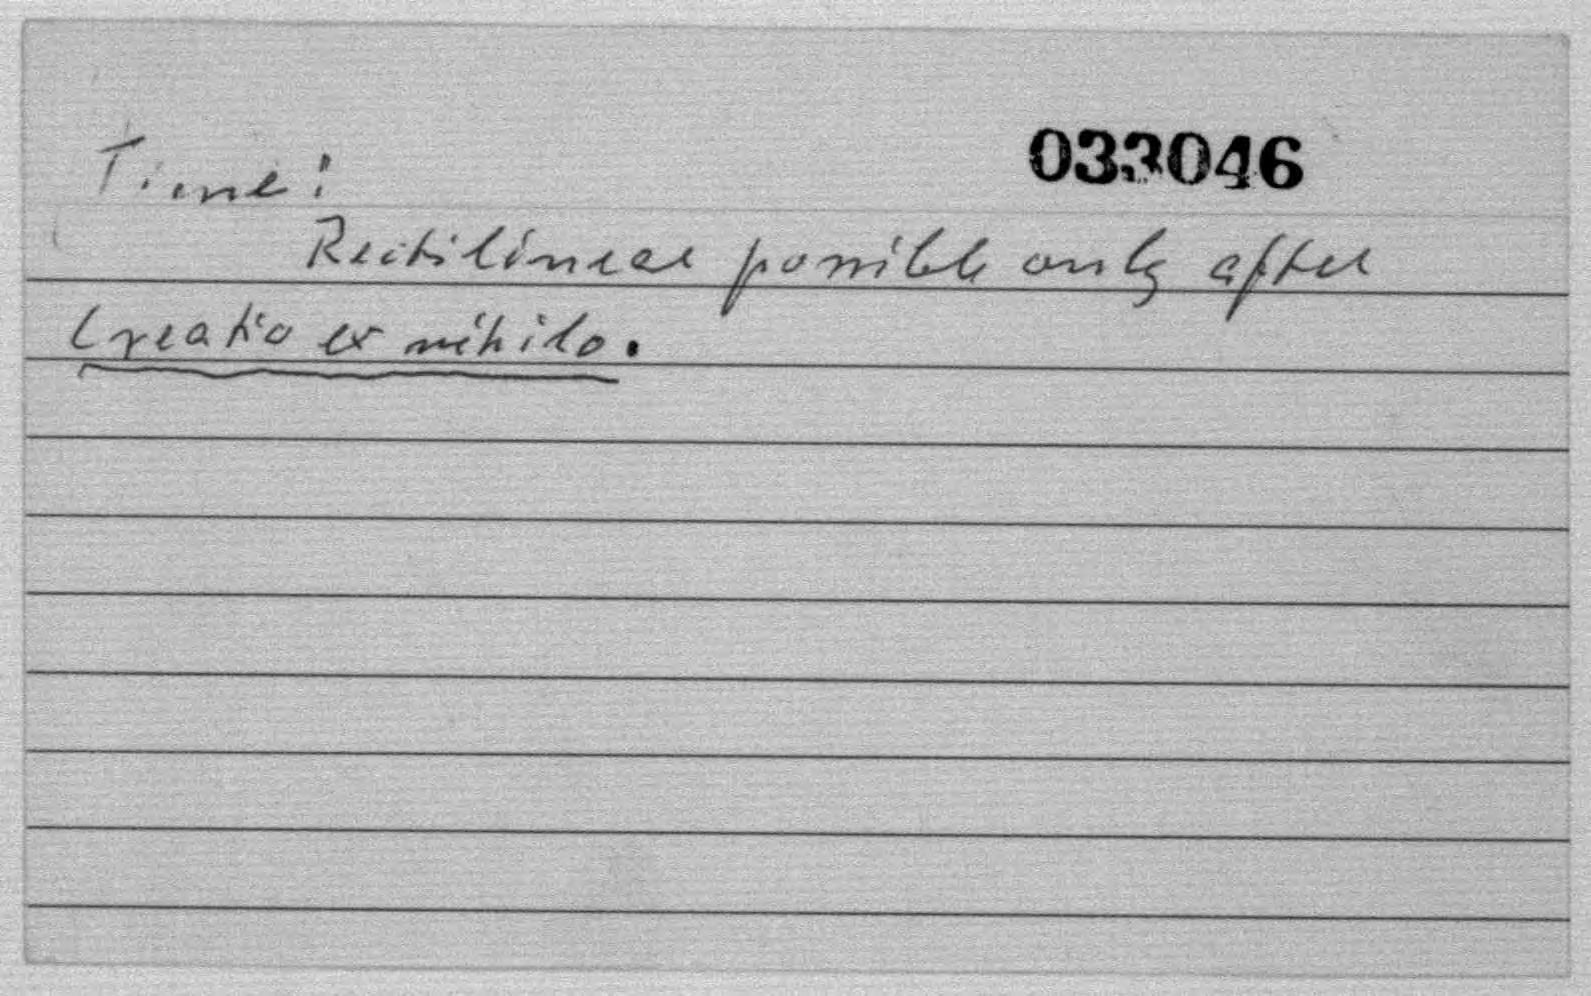 033046
Time:
Rectilinear possible only after
Creatio ex nihilo.